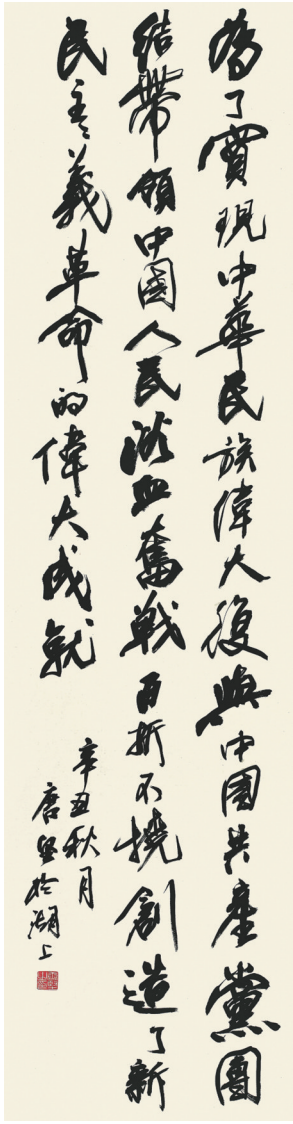 為了實現中華民族偉大復興中國共產黨團
結帶領中國人民浴血奮戰百折不撓創造了新
民主主義革命的偉大成就
辛丑秋月
唐望於湖上